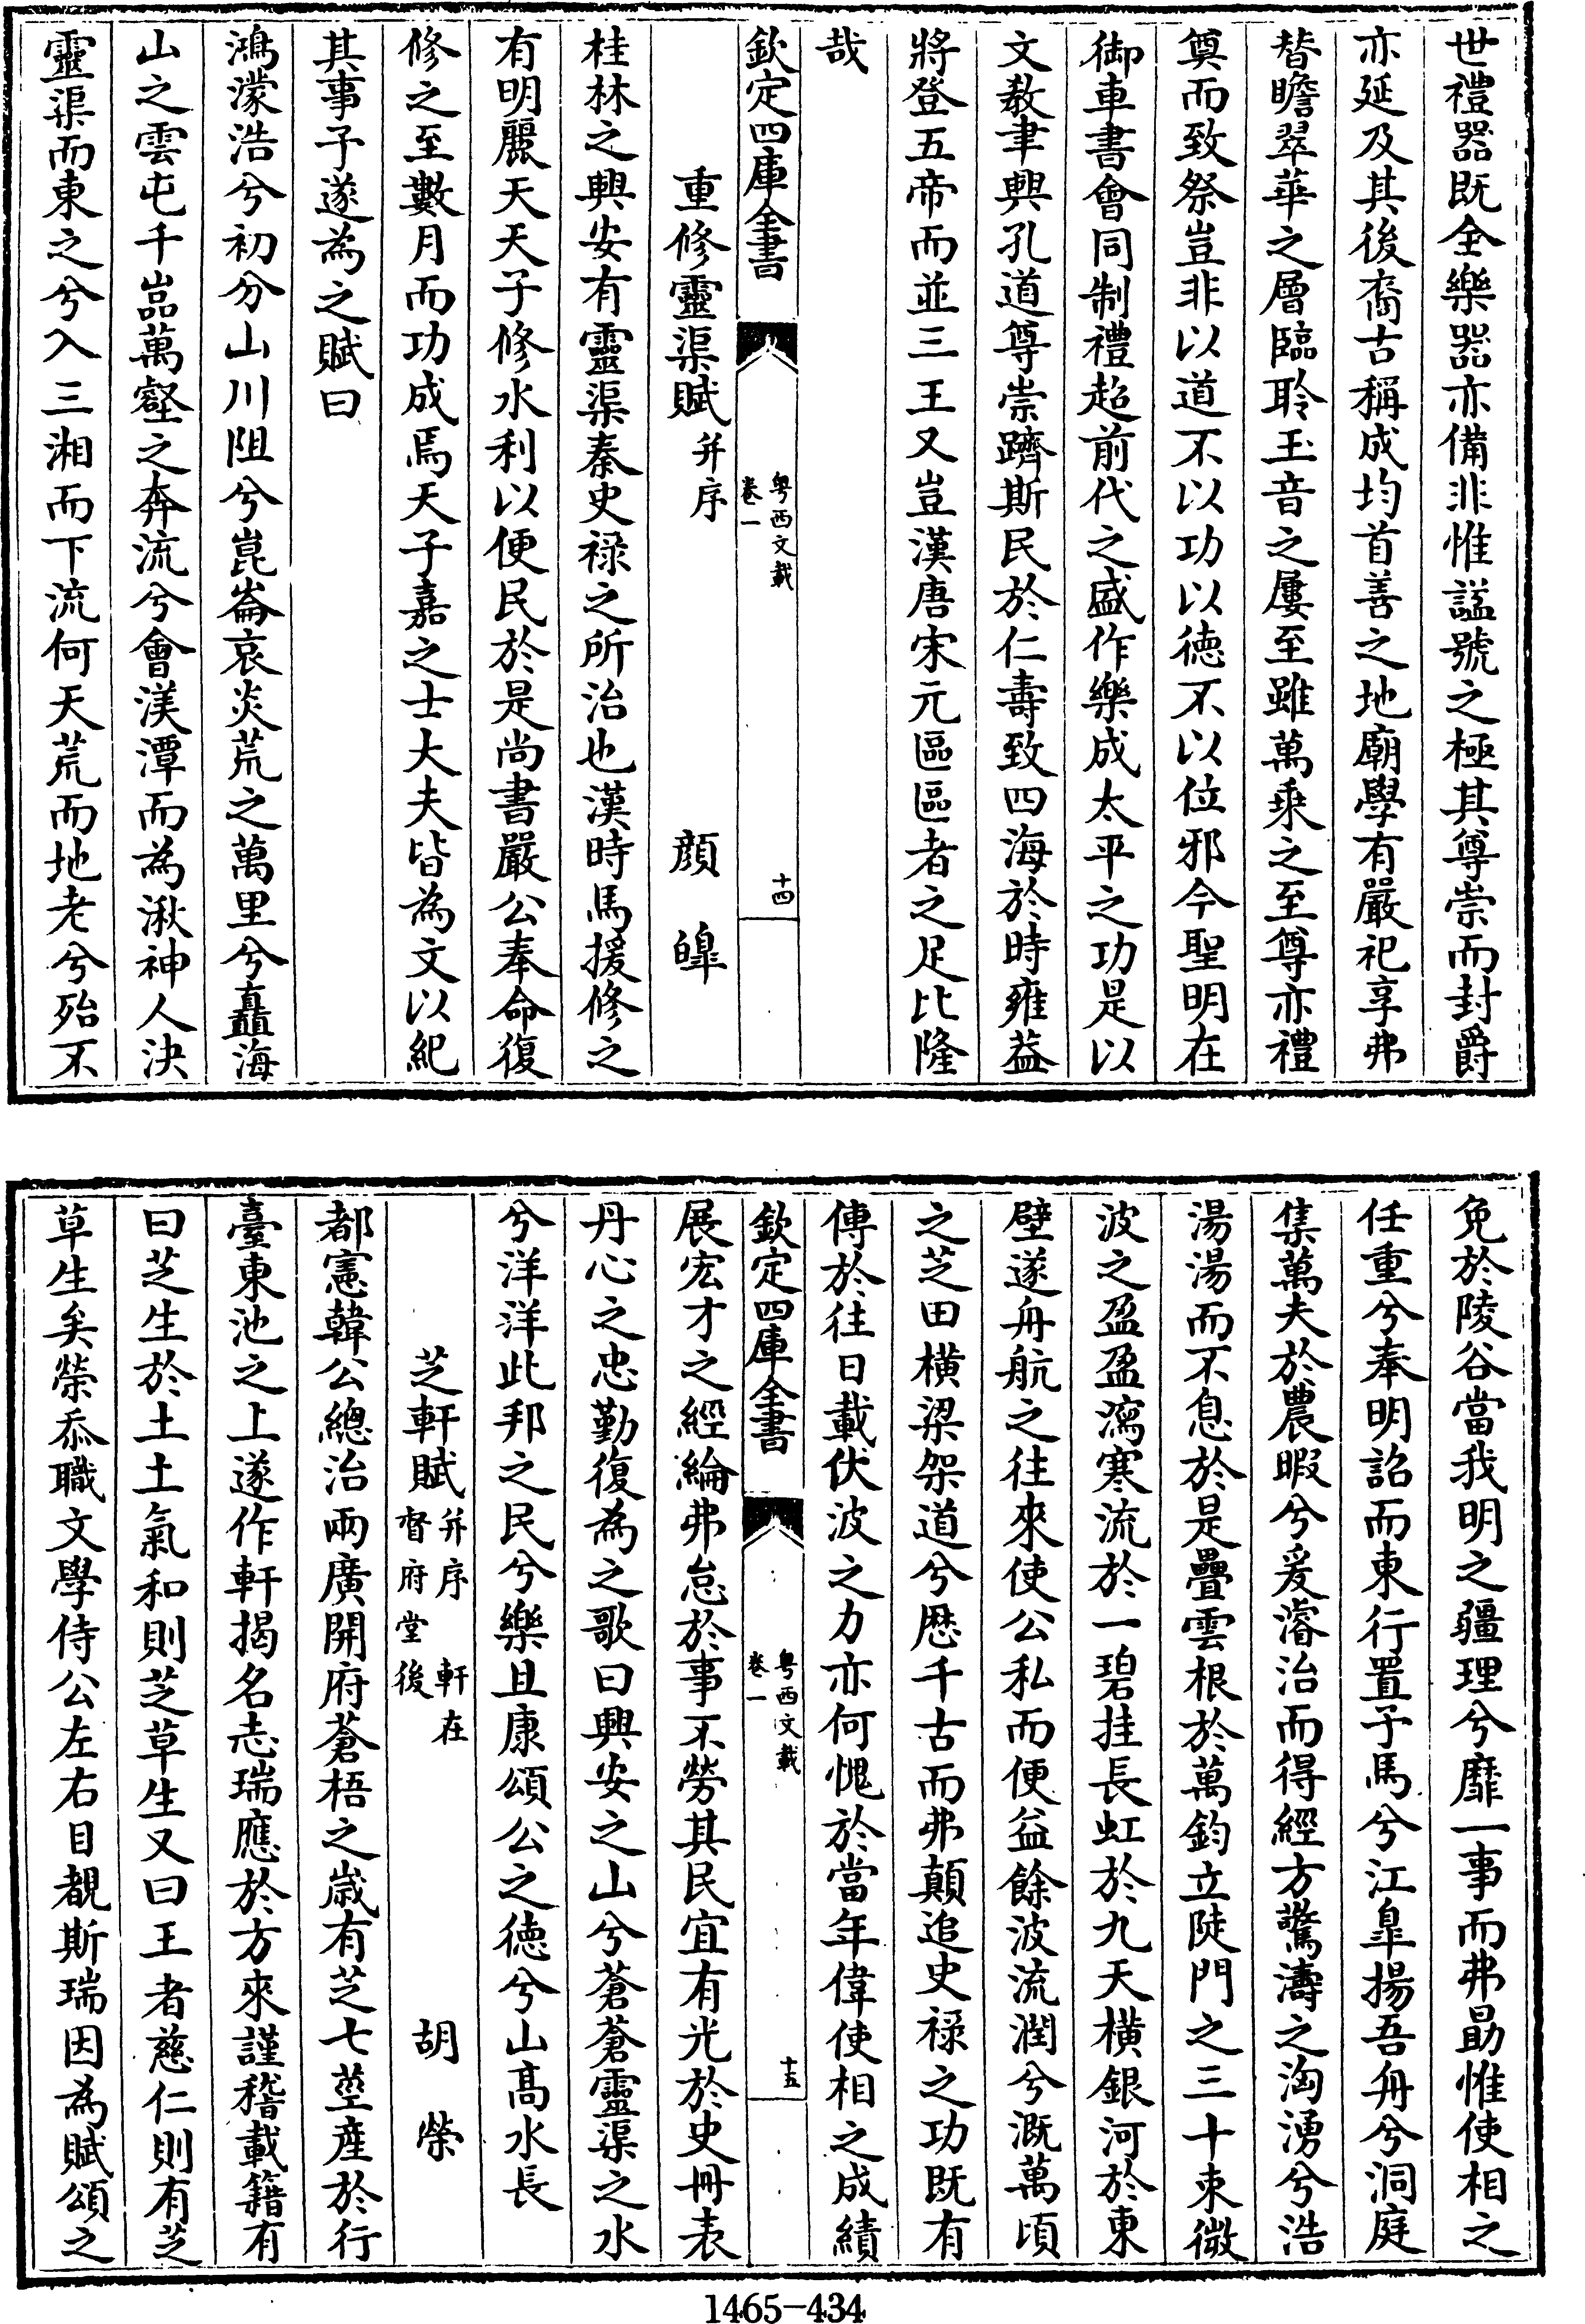 世禮器既全樂器亦備非惟謚號之極其尊崇而封爵
亦延及其後裔古稱成均首善之地廟學有嚴祀享弗
替瞻翠華之層臨聆玉音之屢至雖萬乘之至尊亦禮
奠而致祭豈非以道不以功以德不以位邪今聖明在
御車書會同制禮超前代之盛作樂成太平之功是以
文教聿興孔道尊崇躋斯民於仁壽致四海於時雍葢
將登五帝而並三王又豈漢唐宋元區區者之足比隆
哉
欽定四庫全書
粤西文載
卷一
十四
重修靈渠賦并序
顔皥
桂林之興安有靈渠秦史禄之所治也漢時馬援修之
有明麗天天子修水利以便民於是尚書嚴公奉命復
修之至數月而功成焉天子嘉之士大夫皆為文以紀
其事予遂為之賦曰
鴻濛浩兮初分山川阻兮崑崙哀炎荒之萬里兮矗海
山之雲屯千嵓萬壑之奔流兮會渼潭而為湫神人決
靈渠而東之兮入三湘而下流何天荒而地老兮殆不
免於陵谷當我明之疆理兮靡一事而弗勗惟使相之
任重兮奉明詔而東行置予馬兮江臯揚吾舟兮洞庭
集萬夫於農暇兮爰濬治而得經方驚濤之洶湧兮浩
湯湯而不息於是疊雲根於萬鈞立陡門之三十束微
波之盈盈瀉寒流於一碧挂長虹於九天橫銀河於東
壁遂舟航之往來使公私而便益餘波流潤兮溉萬頃
之芝田橫梁架道兮歴千古而弗顛追史禄之功既有
傳於往日載伏波之力亦何愧於當年偉使相之成績
欽定四庫全書
粤西文載
卷一
十五
展宏才之經綸弗怠於事不勞其民宜有光於史冊表
丹心之忠勤復為之歌曰興安之山兮蒼蒼靈渠之水
兮洋洋此邦之民兮樂且康頌公之德兮山髙水長
芝軒賦并序　軒在
督府堂後
胡榮
都憲韓公總治兩廣開府蒼梧之歲有芝七莖產於行
臺東池之上遂作軒揭名志瑞應於方來謹稽載籍有
曰芝生於土土氣和則芝草生又曰王者慈仁則有芝
草生矣榮忝職文學侍公左右目覩斯瑞因為賦頌之
1465-434